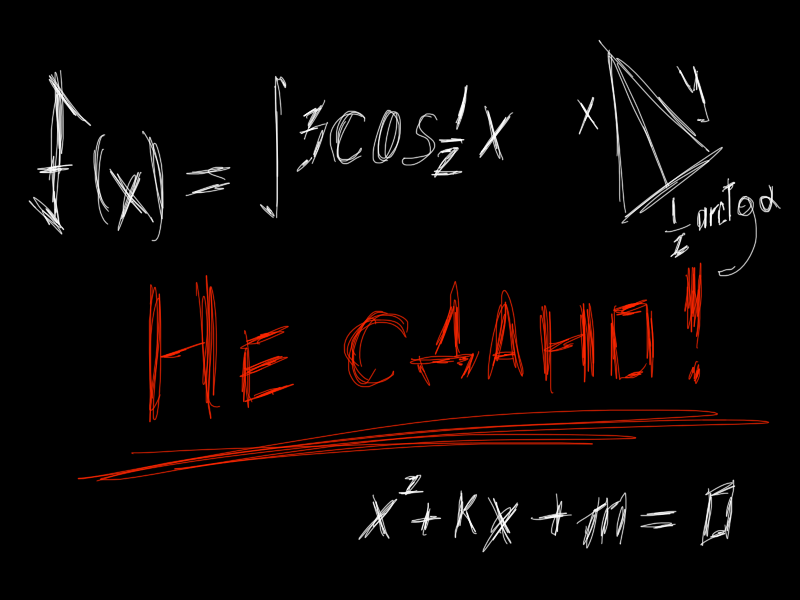 f(x) = ∫3cos½x
x y
½ arctg α
Не сдано!
x² + kx + m = 0